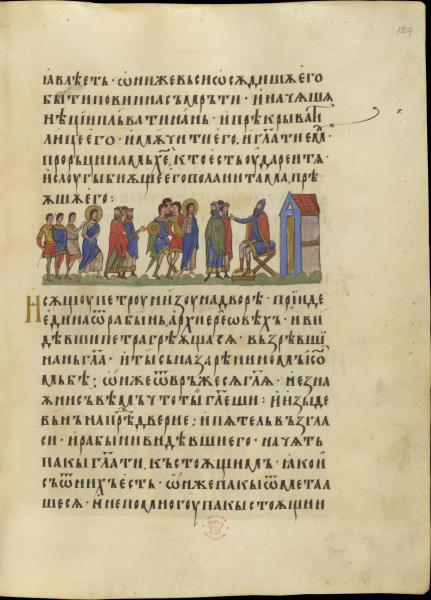 129
ꙗвлѣетъ · ѡниже вьси ѡсѫдишѧ его
быти повинна съмръти · и начѧшѧ
нѣции пльвати нань · и прѣкрыват
лице его · и мѫчити его, и глати ем
прорьци намь хе, кто есть оудареи тѧ
и слоугы биѣше его поланитама прѣ
ѧшѧ его :
Исѫщоу петроу низоу надворѣ · прїиде
едина ѿ рабынь архиереѡвѣхъ · и ви
дѣвши петра грѣѫща сѧ · възрѣвши
нань гла · и ты сьназарѣниномъ ісо
мь бѣ ; ѡнже ѿвръже сѧ глѧ · не зна
ѫ ни съвѣмъ что ты глеши : и изыде
вънъ напрѣдверие : и пѣтель възгла
си · и рабыни видѣвши его · начѧть
пакы глати къ стоѫщимъ · ꙗко и
съ ѿ нихъ есть · ѡнже пакы ѿмета
ше сѧ · и не помногоу пакы стоѫщии